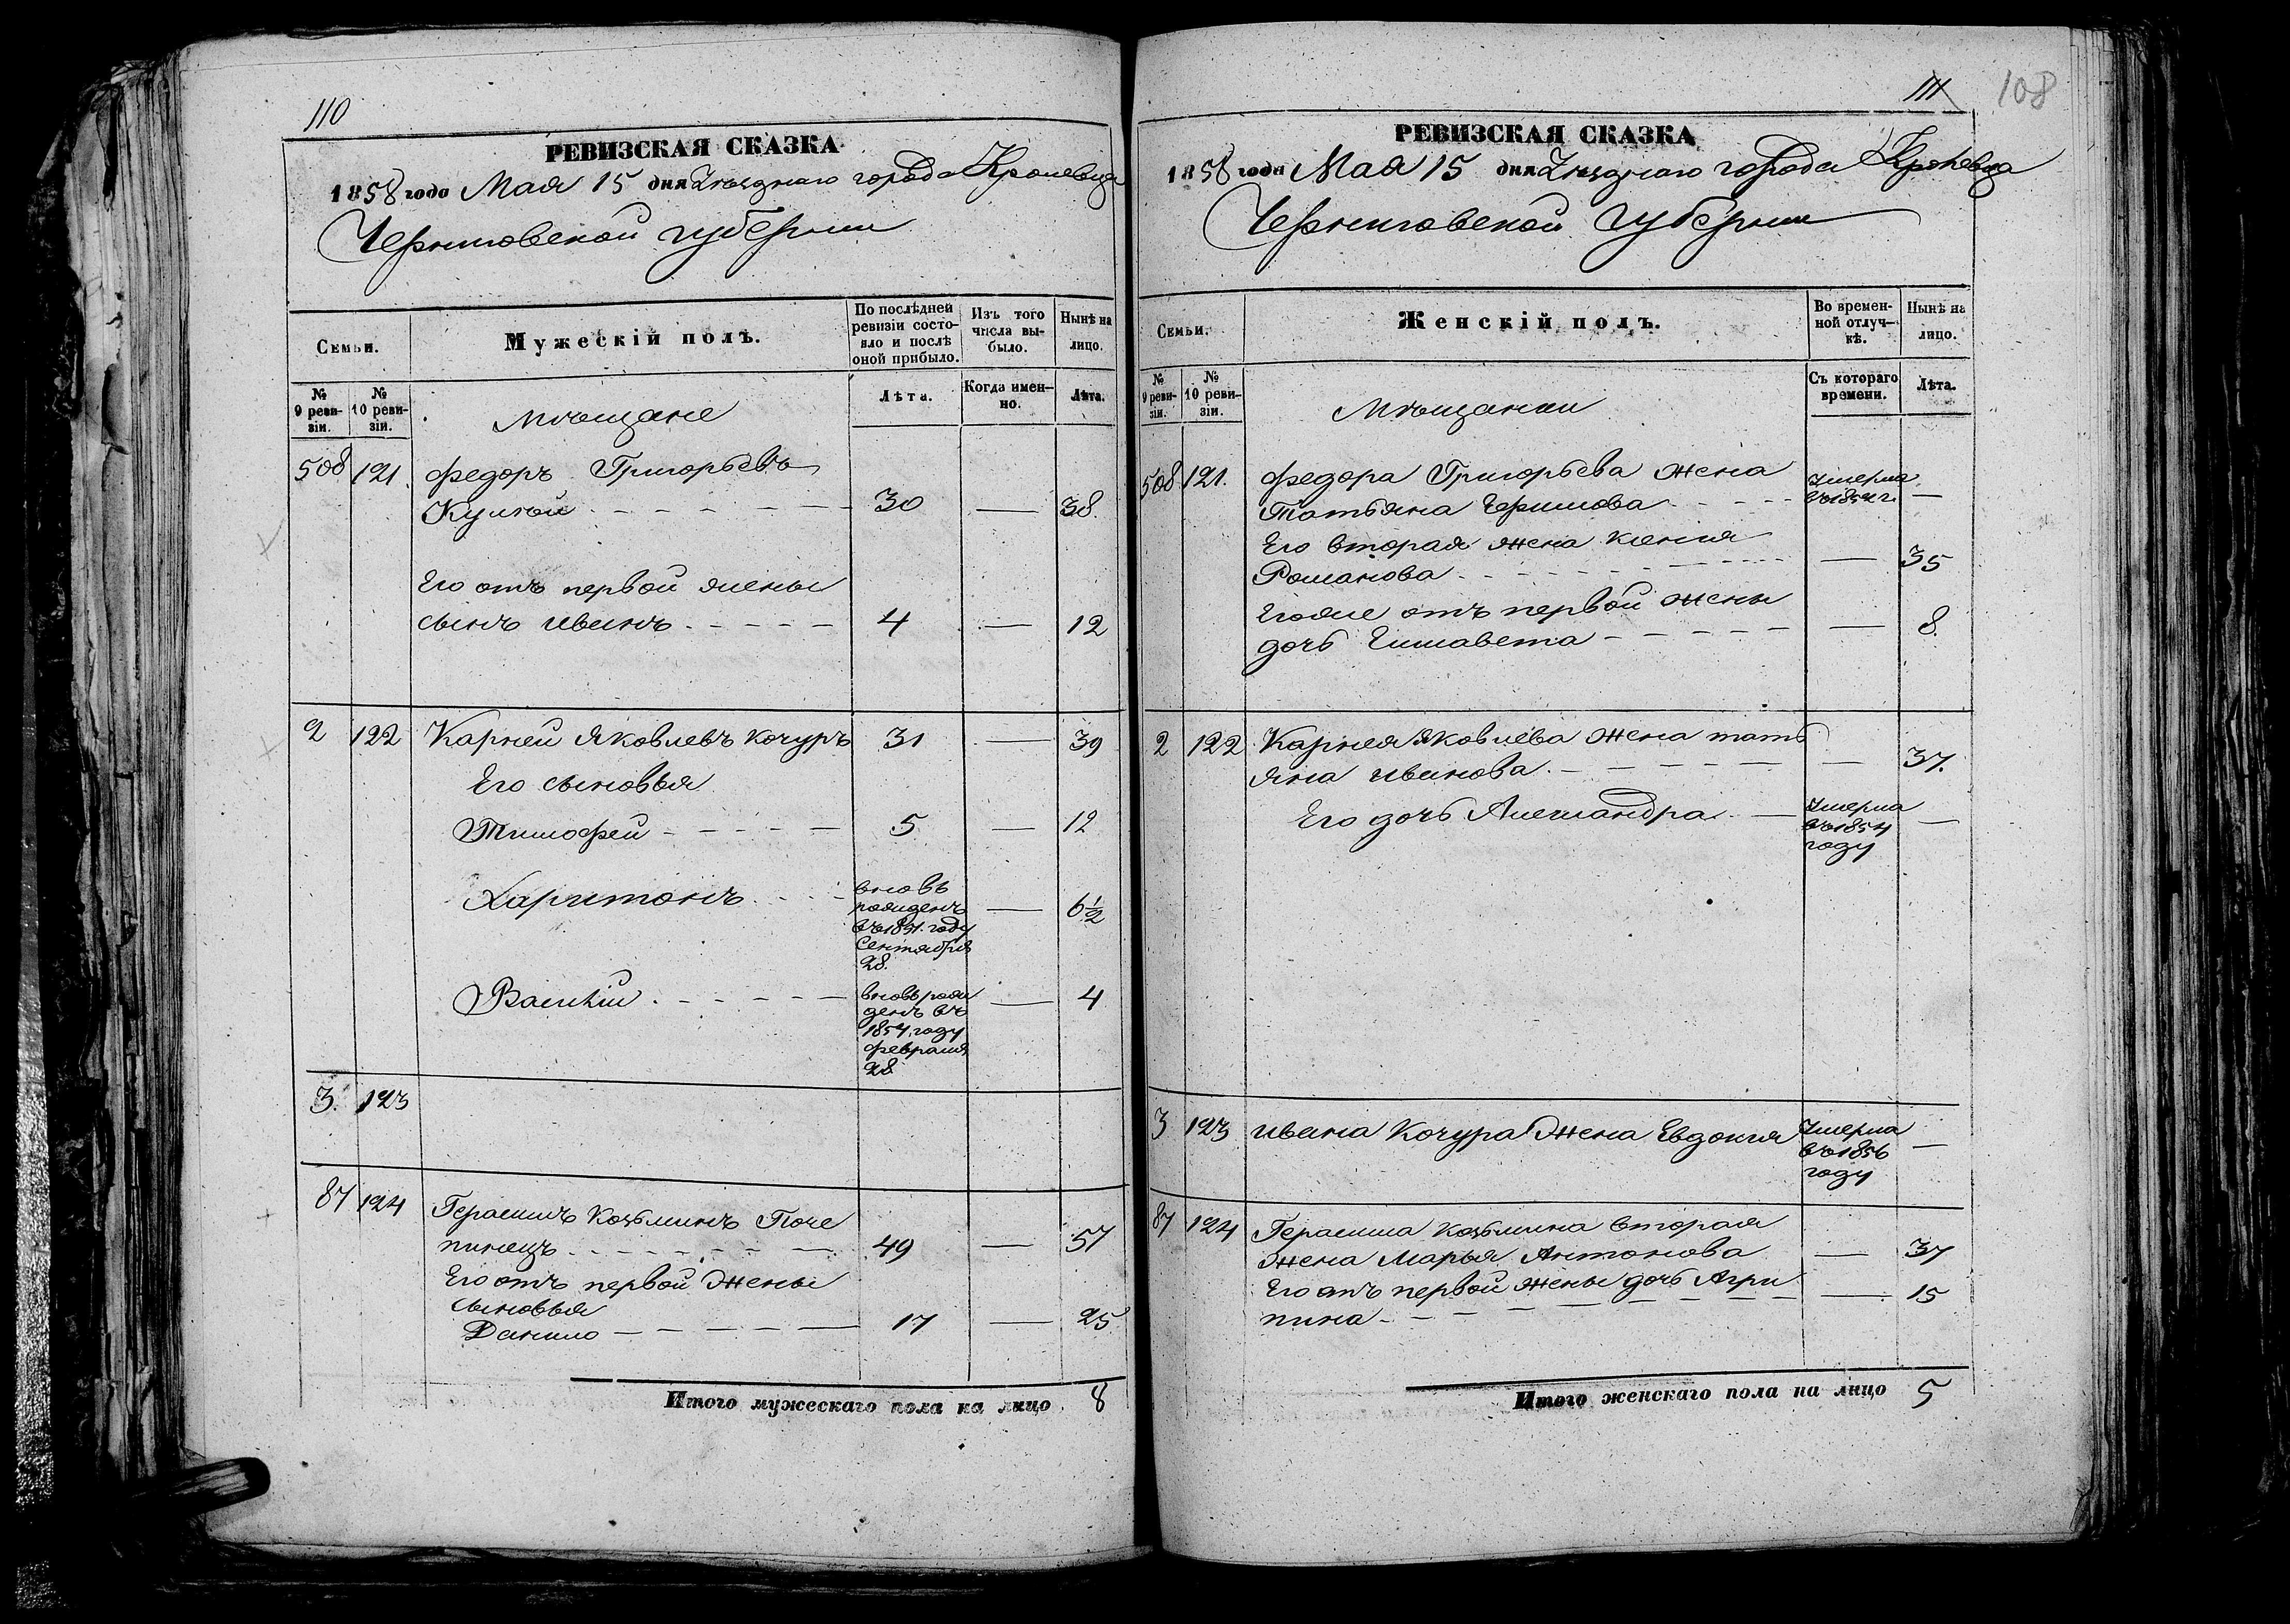 110
РЕВИЗСКАЯ СКАЗКА
1858 года Мая 15 дня Уѣзднаго города Кролевца
Черниговской губерніи
Семьи.
Мужескій полъ.
По послѣдней ревизіи состояло и послѣ оной прибыло.
Изъ того числа выбыло.
Нынѣ на лицо.
№ 9 ревизіи.
№ 10 ревизіи.
Мѣщане
Лѣта.
Когда именно.
Лѣта.
508 121. Федоръ Григорьевъ
30 — 38.
Его отъ первой жены
сынъ Иванъ 4 — 12
2 122 Карней Яковлевъ Кочуръ 31 — 39
Его сыновья
Тимофей 5 — 12
Харитонъ
вновь
рожденъ
въ 1851. году
Сентября
28.
— 6½
Василій
вновь рож
денъ въ
1854. году
февраля
28
— 4
3. 123
87 124 Герасимъ Козьминъ Поче
пинецъ 49 — 57
Его отъ первой жены
сыновья
Данило 17 — 25
Итого мужескаго пола на лицо 8
111 108
РЕВИЗСКАЯ СКАЗКА
1858 года Мая 15 дня Уѣзднаго города Кролевца
Черниговской губерніи
Семьи.
Женскій полъ.
Во временной отлучкѣ.
Нынѣ на лицо.
№ 9 ревизіи.
№ 10 ревизіи.
Мѣщанки
Съ котораго времени.
Лѣта.
508 121. Федора Григорьева жена
Татьяна Ефимова
Умерла
въ 1854 г. —
Его вторая жена Ксенія
Романова — 35
Егоже отъ первой жены
дочь Елисавета — 8.
2 122 Карнея Яковлева жена Тать
яна Иванова — 37.
Его дочь Александра
Умерла
въ 1854
году
—
3 123 Ивана Кочура жена Евдокия
Умерла
въ 1856
году
—
87 124 Герасима Козьмина вторая
жена Марья Антонова — 37
Его отъ первой жены дочь Агри
пина — 15
Итого женскаго пола на лицо 5